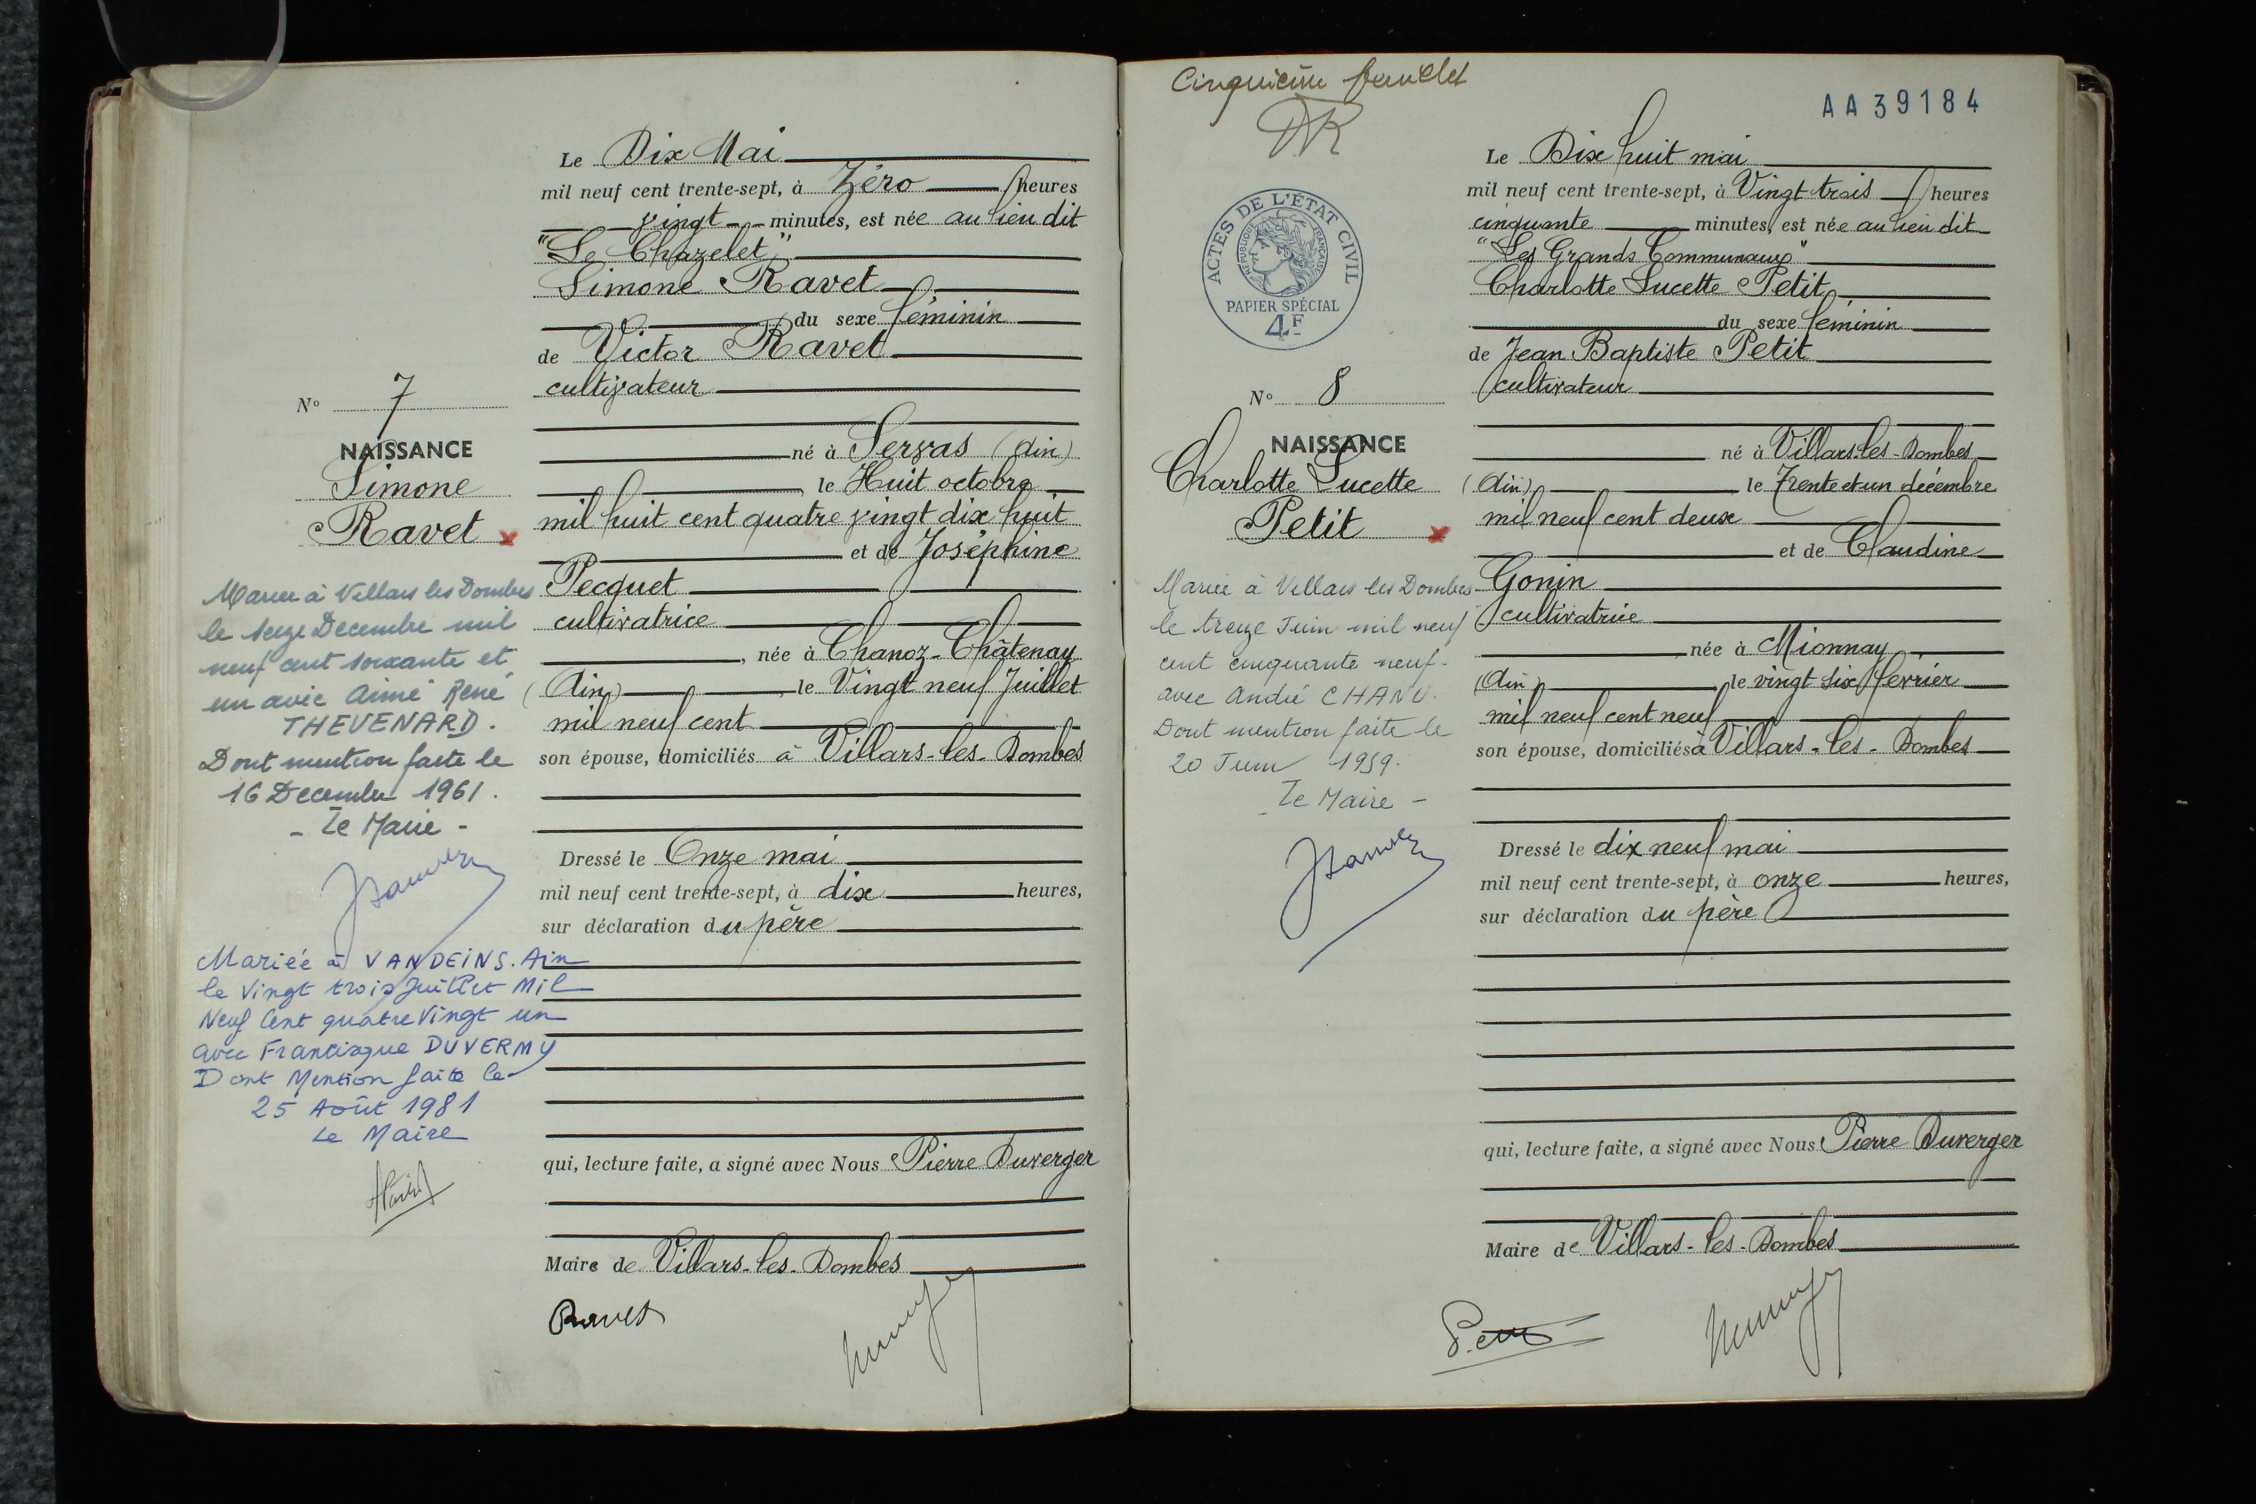 Le Dix Mai
mil neuf cent trente-sept, à Zéro heures
vingt minutes, est née au lieu dit
"Le Chazelet"
Simone Ravet
du sexe féminin
de Victor Ravet
cultivateur
né à Servas (Ain)
le Huit octobre
mil huit cent quatre vingt dix huit
et de Joséphine
Pecquet
cultivatrice
, née à Chanoz-Châtenay
(Ain) , le Vingt neuf Juillet
mil neuf cent
son épouse, domiciliés à Villars-les-Dombes
Dressé le Onze mai
mil neuf cent trente-sept, à dix heures,
sur déclaration du père
qui, lecture faite, a signé avec Nous Pierre Duverger
Maire de Villars-les-Dombes
Ravet
N° 7
NAISSANCE
Simone
Ravet
Mariée à Villars les Dombes
le seize Decembre mil
neuf cent soixante et
un avec Aimé René
THEVENARD.
Dont mention faite le
16 Decembre 1961.
- Le Maire -
Mariée à VANDEINS. Ain
le Vingt trois Juillet Mil
Neuf Cent quatre Vingt un
avec Francisque DUVERMY
Dont Mention faite le
25 Août 1981
Le Maire
Cinquième feuillet
AA39184
ACTES DE L'ÉTAT CIVIL
RÉPUBLIQUE FRANÇAISE
PAPIER SPÉCIAL
4F
Le Dix huit mai
mil neuf cent trente-sept, à Vingt trois heures
cinquante minutes, est née au lieu dit
"Les Grands Communaux"
Charlotte Lucette Petit
du sexe féminin
de Jean Baptiste Petit
cultivateur
né à Villars-les-Dombes
(Ain) le Trente et un décembre
mil neuf cent deux
et de Claudine
Gonin
cultivatrice
née à Mionnay
(Ain) , le vingt six février
mil neuf cent neuf
son épouse, domiciliés à Villars-les-Dombes
Dressé le dix neuf mai
mil neuf cent trente-sept, à onze heures,
sur déclaration du père
qui, lecture faite, a signé avec Nous Pierre Duverger
Maire de Villars-les-Dombes
N° 8
NAISSANCE
Charlotte Lucette
Petit
Mariée à Villars les Dombes
le treize Juin mil neuf
cent cinquante neuf-
avec André CHANU.
Dont mention faite le
20 Juin 1959.
- Le Maire -